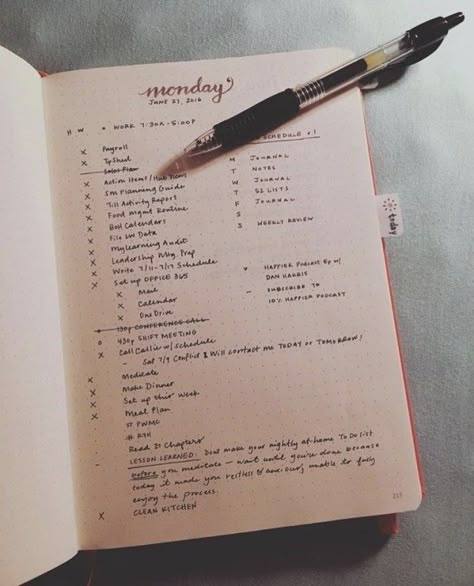 monday
JUNE 27, 2016
H W • WORK 7:30A-5:00P
X Payroll
X TpShed
Sales Plan
X Action Items/Hub Items
X SM Planning Guide
X Till Activity Report
X Food Mgmt Routine
X BOH Calendars
X File LW Data
X MyLearning Audit
X Leadership Mtg. Prep
X Write 7/11-7/17 Schedule
X Set up OFFICE 365
X Mail
X Calendar
X OneDrive
130p CONFERENCE CALL
o 430p SHIFT MEETING
X Call Callie w/ schedule
– Sat 7/9 Conflict & Will contact me TODAY or TOMORROW!
Meditate
X Make Dinner
X Set up this week
X Meal Plan
X # PWMG
Read 21 Chapters
– LESSON LEARNED: Dont make your nightly at-home To Do list
before you meditate – wait until you're done because
today it made you restless & anxious, unable to fully
enjoy the process.
X CLEAN KITCHEN
SCHEDULE v.1
M JOURNAL
T NOTES
W JOURNAL
T 52 LISTS
F JOURNAL
S
S WEEKLY REVIEW
♥ HAPPIER PODCAST Ep w/
DAN HARRIS
– SUBSCRIBE TO
10% HAPPIER PODCAST
today